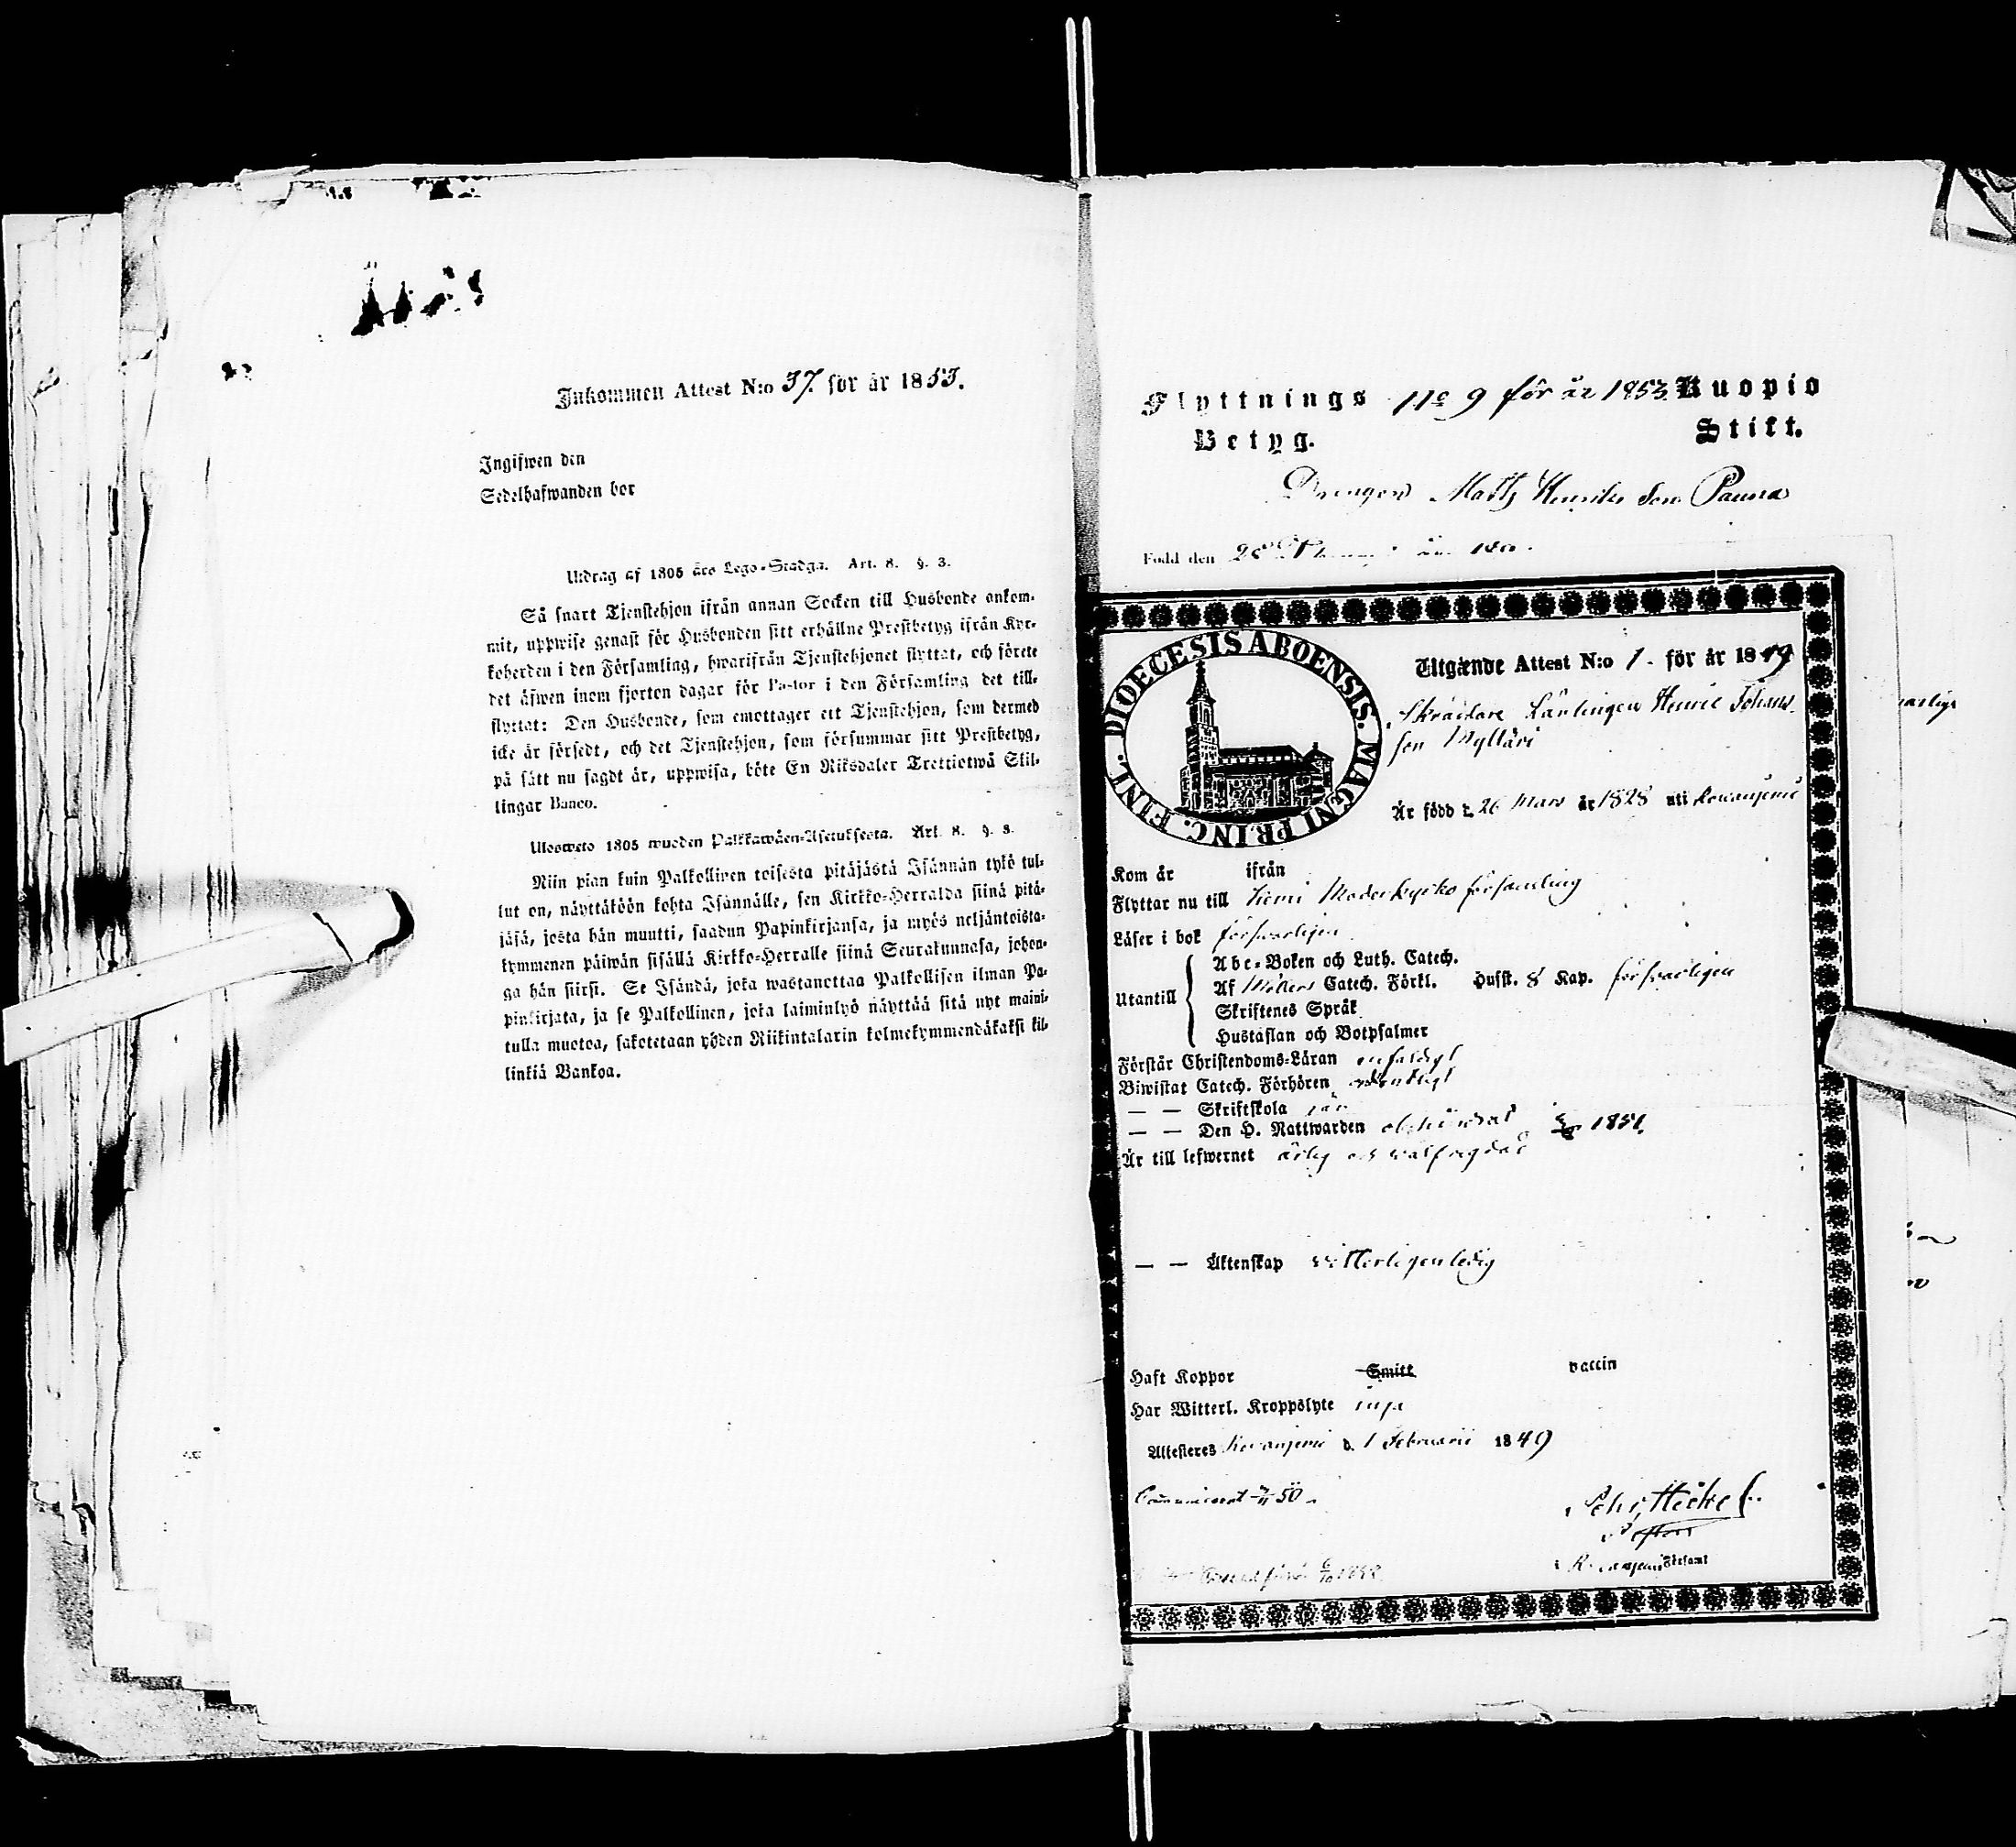 Inkommen Attest N:o 37. för år 1853.
Ingifwen den
Sedelhafwanden bor
Utdrag af 1805 års Lego-Stadga. Art. 8. §. 3.
Så snart Tjenstehjon ifrån annan Socken till Husbonde ankom-
mit, uppwise genast för Husbonden sitt erhållne Prestbetyg ifrån Kyr-
koherden i den Församling, hwarifrån Tjenstehjonet flyttat, och förete
det äfwen inom fjorton dagar för Pastor i den Församling det till-
flyttat: Den Husbonde, som emottager ett Tjenstehjon, som dermed
icke är försedt, och det Tjenstehjon, som försummar sitt Prestbetyg,
på sätt nu sagdt är, uppwisa, böte En Riksdaler Trettiotwå Skil-
lingar Banco.
Ulosweto 1805 wuoden Palkkawäen-Asetuksesta. Art. 8. §. 3.
Niin pian kuin Palkollinen toisesta pitäjästä Isännän tykö tul-
lut on, näyttäköön kohta Isännälle, sen Kirkko-Herralda siinä pitä-
jäsä, josta hän muutti, saadun Papinkirjansa, ja myös neljäntoista-
kymmenen päiwän sisällä Kirkko-Herralle siinä Seurakunnasa, johon-
ga hän siirsi. Se Isändä, joka wastanottaa Palkollisen ilman Pa-
pinkirjata, ja se Palkollinen, joka laiminlyö näyttää sitä nyt maini-
tulla muotoa, sakotetaan yhden Riikintalarin kolmekymmendäkaksi kil-
linkiä Bankoa.
Flyttnings No 9 för år 1853 Kuopio
Betyg. Stift.
Drengen Matts Henriks Son Pauna
Född den 28
DIOECESIS ABOENSIS. MAGNI PRINC. FINL.
Utgående Attest N:o 1. för år 1849
Skräddare Lärlingen Henric Johans
son Mylläri
Är född d. 26 Mars år 1828 uti Rowaniemi
Kom år ifrån
Flyttar nu till Kemi Moderkyrko församling
Läser i bok försvarligen
Utantill
Abc-Boken och Luth. Catech.
Af Möllers Catech. Förkl. Hufst. 8 Kap. försvarligen
Skriftenes Språk
Hustaflan och Botpsalmer
Förstår Christendoms-Läran enfaldigt
Biwistat Catech. Förhören ordentligt
— — Skriftskola
— — Den H. Nattwarden 1851.
Är till lefwernet ärlig och wälfregdad
— — Äktenskap witterligen ledig
Haft Koppor Smitt vaccin
Har Witterl. Kroppslyte inga
Attesteres Rowaniemi d. 1 Februarii 1849
Communicerat 50
Pehr Heickel
Pastor
Rowaniemi Församl
1852